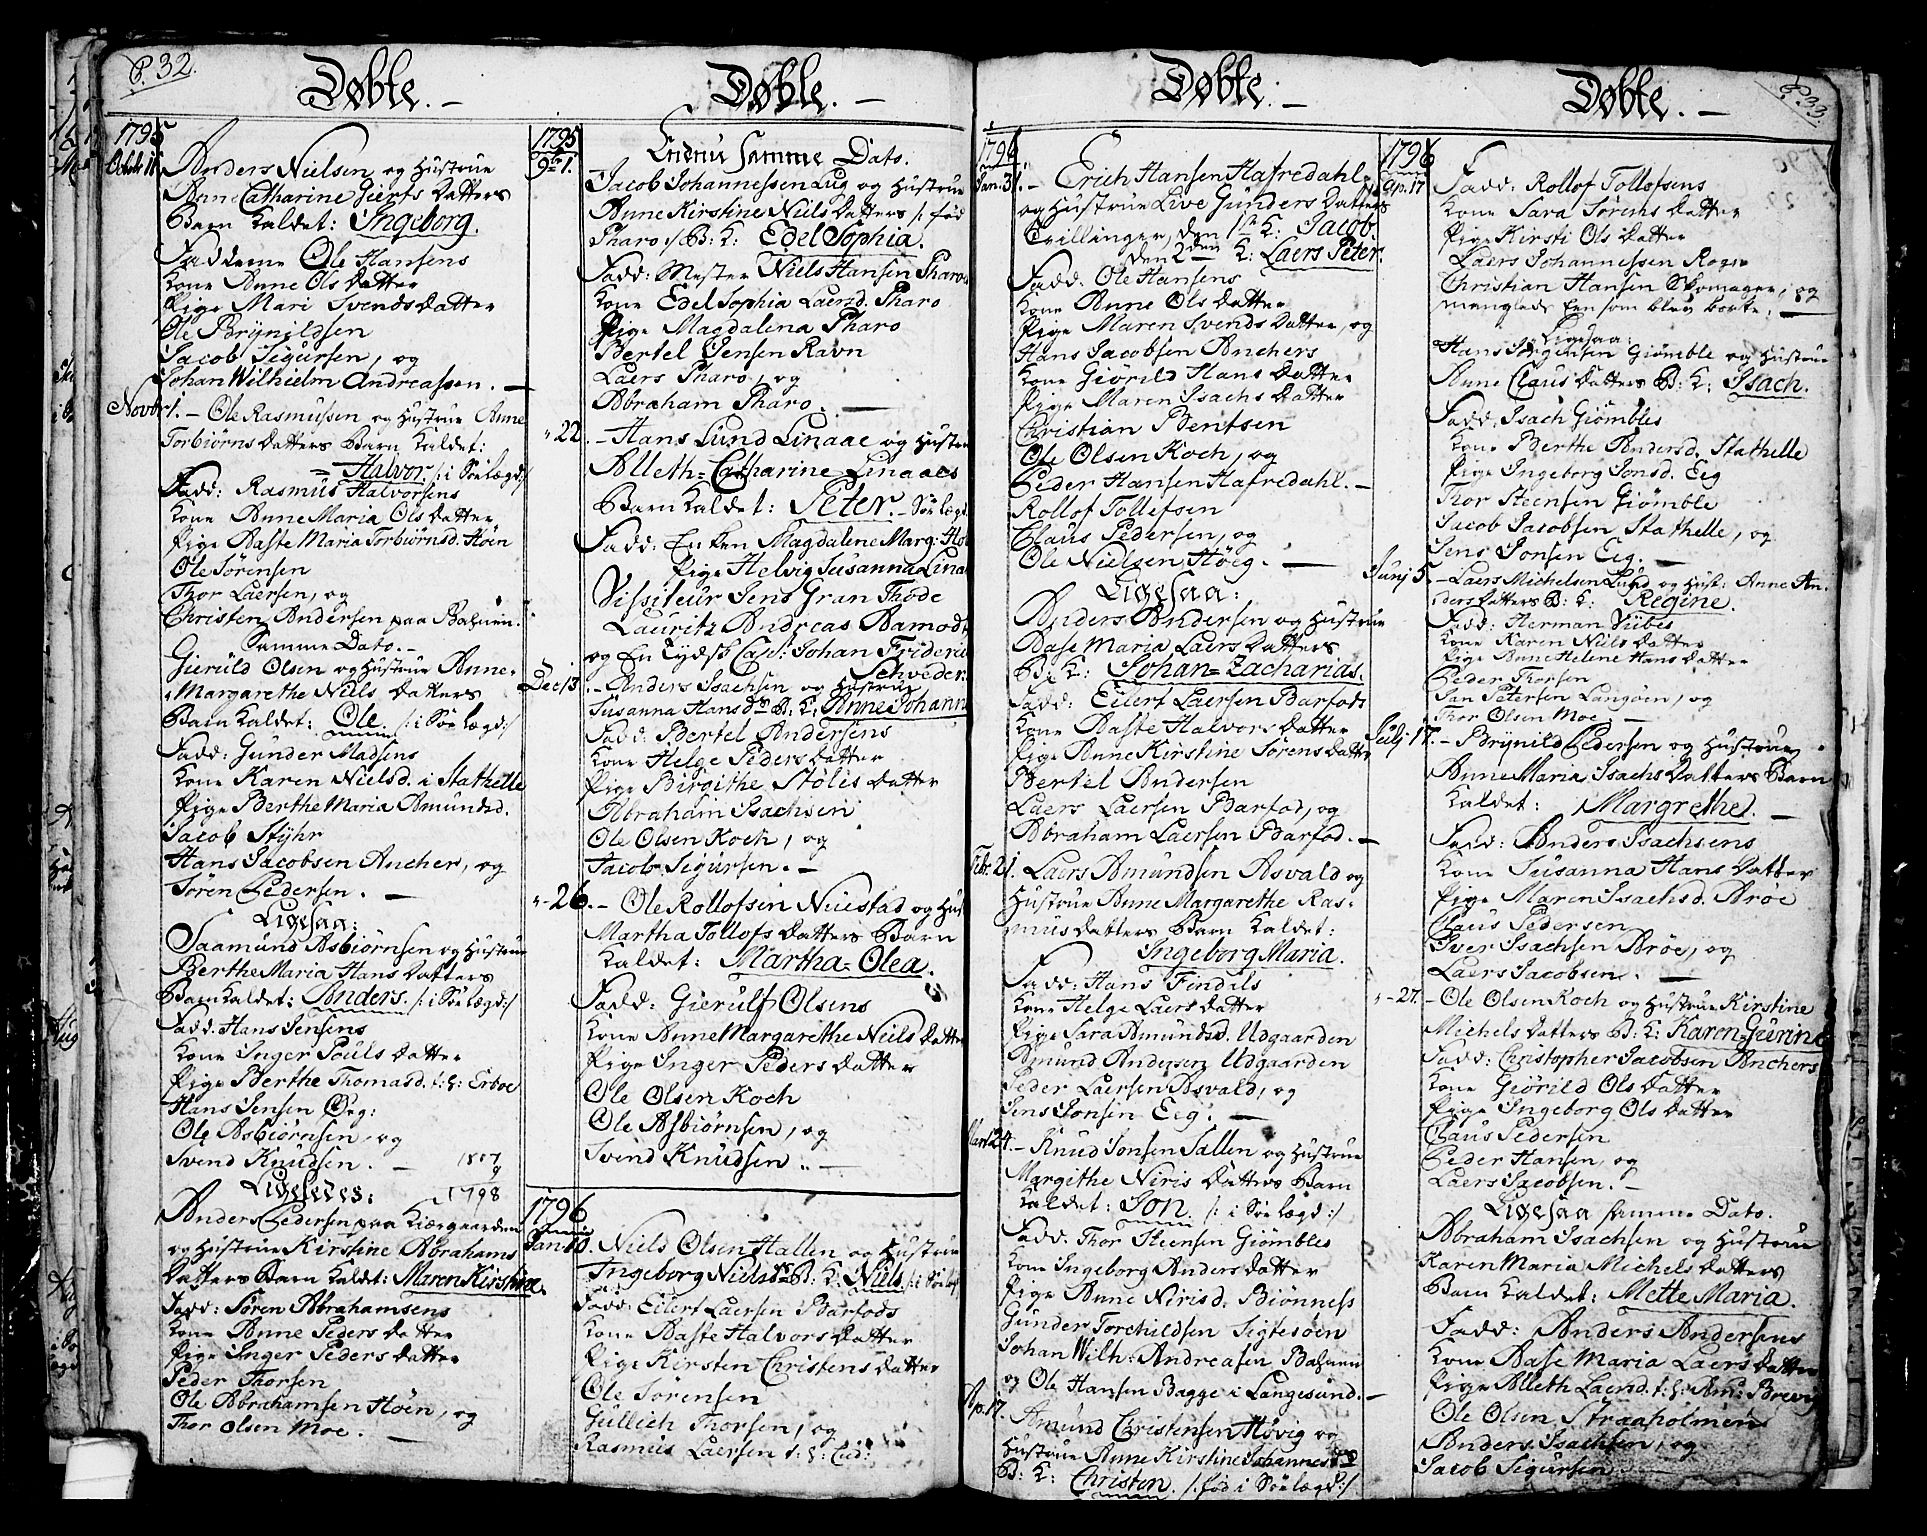 P. 32.
Døbte. —
1795
Octobr 11
Anders Nielsen og Hustrue
Anne Catharine Gierts Datters
Barn kaldet: Ingeborg.
Fadderne Ole Hansens
Kone Anne Ols Datter
Pige Mari Svends Datter
Ole Brynildsen
Jacob Sigursen, og
Johan Wilhielm Andreassen. —
Novbr 1. — Ole Rasmussen og Hustrue Anne
Torbiørns Datters Barn kaldet:
= Halvor. /: i Søe lægd :/
Fadd: Rasmus Halvorsens
Kone Anne Maria Ols Datter
Pige Baste Maria Torbiørnsd. Høen
Ole Sørensen
Thor Laersen, og
Christen Andersen paa
Samme Dato. —
Gieruld Olsen og Hustrue Anne
Margarethe Niels Datters
Barn kaldet: Ole. /: i Søe lægd :/
Fadd: Gunder Madsens
Kone Karen Nielsd. i Stathelle
Pige Berthe Maria Amundsd.
Jacob Styhr
Hans Jacobsen Ancher, og
Søren Pedersen. —
Ligesaa:
Saamund Asbiørnsen og Hustrue
Berthe Maria Hans Datters
Barn kaldet: Anders. /: i Søe lægd :/
Fadd: Hans Jensens
Kone Inger Pouls Datter
Pige Berthe Thomasd. t: h: Erboe
Hans Jensen Ørg:
Ole Asbiørnsen, og
Svend Knudsen. —
1807
9
1798
Ligeledes:
Anders Pedersen paa Kiærgaarden
og Hustrue Kirstine Abrahams
Datters Barn kaldet: Maren Kirstine.
Fadd: Søren Abrahamsens
Kone Anne Peders Datter
Pige Inger Peders Datter
Peder Thorsen
Ole Abrahamsen Høen, og
Thor Olsen Moe. —
Døbte. —
1795
9br 1.
Endnu Samme Dato.
Jacob Johannessen Lug og Hustrue
Anne Kirstine Niels Datters /: fød
Pharo :/ B: K: Edel Sophia.
Fadd: Mester Niels Hansen Pharos
Kone Edel Sophia Laersd. Pharo
Pige Magdalena Pharo
Bertel Jensen Ravn
Laers Pharo, og
Abraham Pharo. —
" 22. — Hans Lund Linaae og Hustrue
Alleth=Catharine Linaaes
Barn kaldet: Peter. — Søe lægd
Fadd: Enken Magdalene Marg:
Pige Helvig Susanna Lina
Vissiteur Jens Gran Thode
Lauritz Andreas Aamodt
og En Tydsk Johan Frideric
Schveder.
Dec 13. — Anders Isachsen og Hustrue
Susanna Hans Dr B: K: Anne Johann
Fadd: Bertel Andersens
Kone Helge Peders Datter
Pige Birgithe Støles Datter
Abraham Isachsen
Ole Olsen Koch, og
Jacob Sigursen. —
" - 26. — Ole Rollofsen Niiestad og Hus
Martha Tollofs Datters Barn
kaldet: Martha=Olea.
Fadd: Gierulf Olsens
Kone Anne Margarethe Niels Datter
Pige Inger Peders Datter
Ole Olsen Koch
Ole Asbiørnsen, og
Svend Knudsen. —
1796
Jan: 10. Niels Olsen Hallen og Hustrue
Ingeborg Nielsdrs B: K: Niels. /: i Søe lægd
Fadd: Eilert Laersen Barfods
Kone Baste Halvors Datter
Pige Kirsten Christens Datter
Ole Sørensen
Gullich Thorsen, og
Rasmus Laersen t: h:
Døbte. —
1796
Jan: 31. — Erich Hansen Hafredahl
og Hustrue Live Gunders Datters
Tvillinger, den 1te K: Jacob.
den 2den K: Laers Peter.
Fadd: Ole Hansens
Kone Anne Ols Datter
Pige Maren Svends Datter, og
Hans Jacobsen Anchers
Kone Giørild Hans Datter
Pige Maren Isachs Datter
Christian Bentsen
Ole Olsen Koch, og
Peder Hansen Hafredahl. —
Rollof Tollefsen
Claus Pedersen, og
Ole Nielsen Høeg. —
Ligesaa:
Anders Andersen og Hustrue
Base Maria Laers Datters
B: K: Johan=Zacharias.
Fadd: Eilert Laersen Barfods
Kone Baste Halvors Datter
Pige Anne Kirstine Sørens Datter
Bertel Andersen
Laers Laersen Barfod, og
Abraham Laersen Barfod. —
Febr. 21. Laers Amundsen Asvald og
Hustrue Anne Margarethe Ras=
mus datters Barn kaldet:
Ingeborg Maria.
Fadd: Hans Findals
Kone Helge Laers Datter
Pige Sara Amundsd. Udgaarden
Amund Andersen Udgaarden
Peder Laersen Asvald, og
Jens Jonsen Eeg. —
24. — Knud Jonsen Sallen og Hustrue
Margithe Niris Datters Barn
kaldet: Jon. /: i Søe lægd :/
Fadd: Thor Steensen Giømbles
Kone Ingeborg Anders Datter
Pige Anne Nirisd. Biønness
Gunder Torchildsen Sigtesøen
Johan Wilh: Andreasen
og Ole Hansen Bagge i Langesund. —
Ap. 17. Amund Christensen Høvig og
Hustrue Anne Kirstine Johannesdr
B: K: Christen. /: fød i Søe lægd :/
P. 33
Døbte. —
1796
Ap. 17
Fadd: Rollof Tollofsens
Kone Sara Sørens Datter
Pige Kirsti Ols Datter
Laers Johannessen Roen
Christian Hansen Skomager, og
manglede Een som blev borte. —
Ligesaa:
Hans Jørgensen Giømble og Hustrue
Anne Claus Datters B: K: Isach.
Fadd: Isach Giømbles
Kone Berthe Andersd. Stathelle
Pige Ingeborg Jonsd. Eeg
Thor Steensen Giømble
Jacob Jacobsen Stathelle, og
Jens Jonsen Eeg. —
Junj 5. — Laers Michelsen Lund og Hust: Anne An=
ders Datters B: K: Regine.
Fadd: Herman Viibes
Kone Karen Niels Datter
Pige Anne Helene Hans Datter
Peder Thorsen
Jan Petersen Langøen, og
Thor Olsen Moe. —
Julj 17. — Brynild Pedersen og Hustrue
Anne Maria Isachs Datters Barn
kaldet: Margrethe. —
Fadd: Anders Isachsens
Kone Susanna Hans Datter
Pige Maren Isachsd. Arøe
Claus Pedersen
Iver Isachsen Arøe, og
Laers Jacobsen. —
" - 27. — Ole Olsen Koch og Hustrue Kirstine
Michels Datters B: K: Karen=Gurine
Fadd: Christopher Jacobsen Anchers
Kone Giørild Ols Datter
Pige Ingeborg Ols Datter
Claus Pedersen
Peder Hansen, og
Laers Jacobsen. —
Ligesaa samme Dato.
Abraham Isachsen og Hustrue
Karen Maria Michels Datters
Barn kaldet: Mette Maria.
Fadd: Anders Andersens
Kone Base Maria Laers Datter
Pige Alleth Laersd. t: h: Am: Brevig
Ole Olsen Straaholmen
Anders Isachsen, og
Jacob Sigursen.